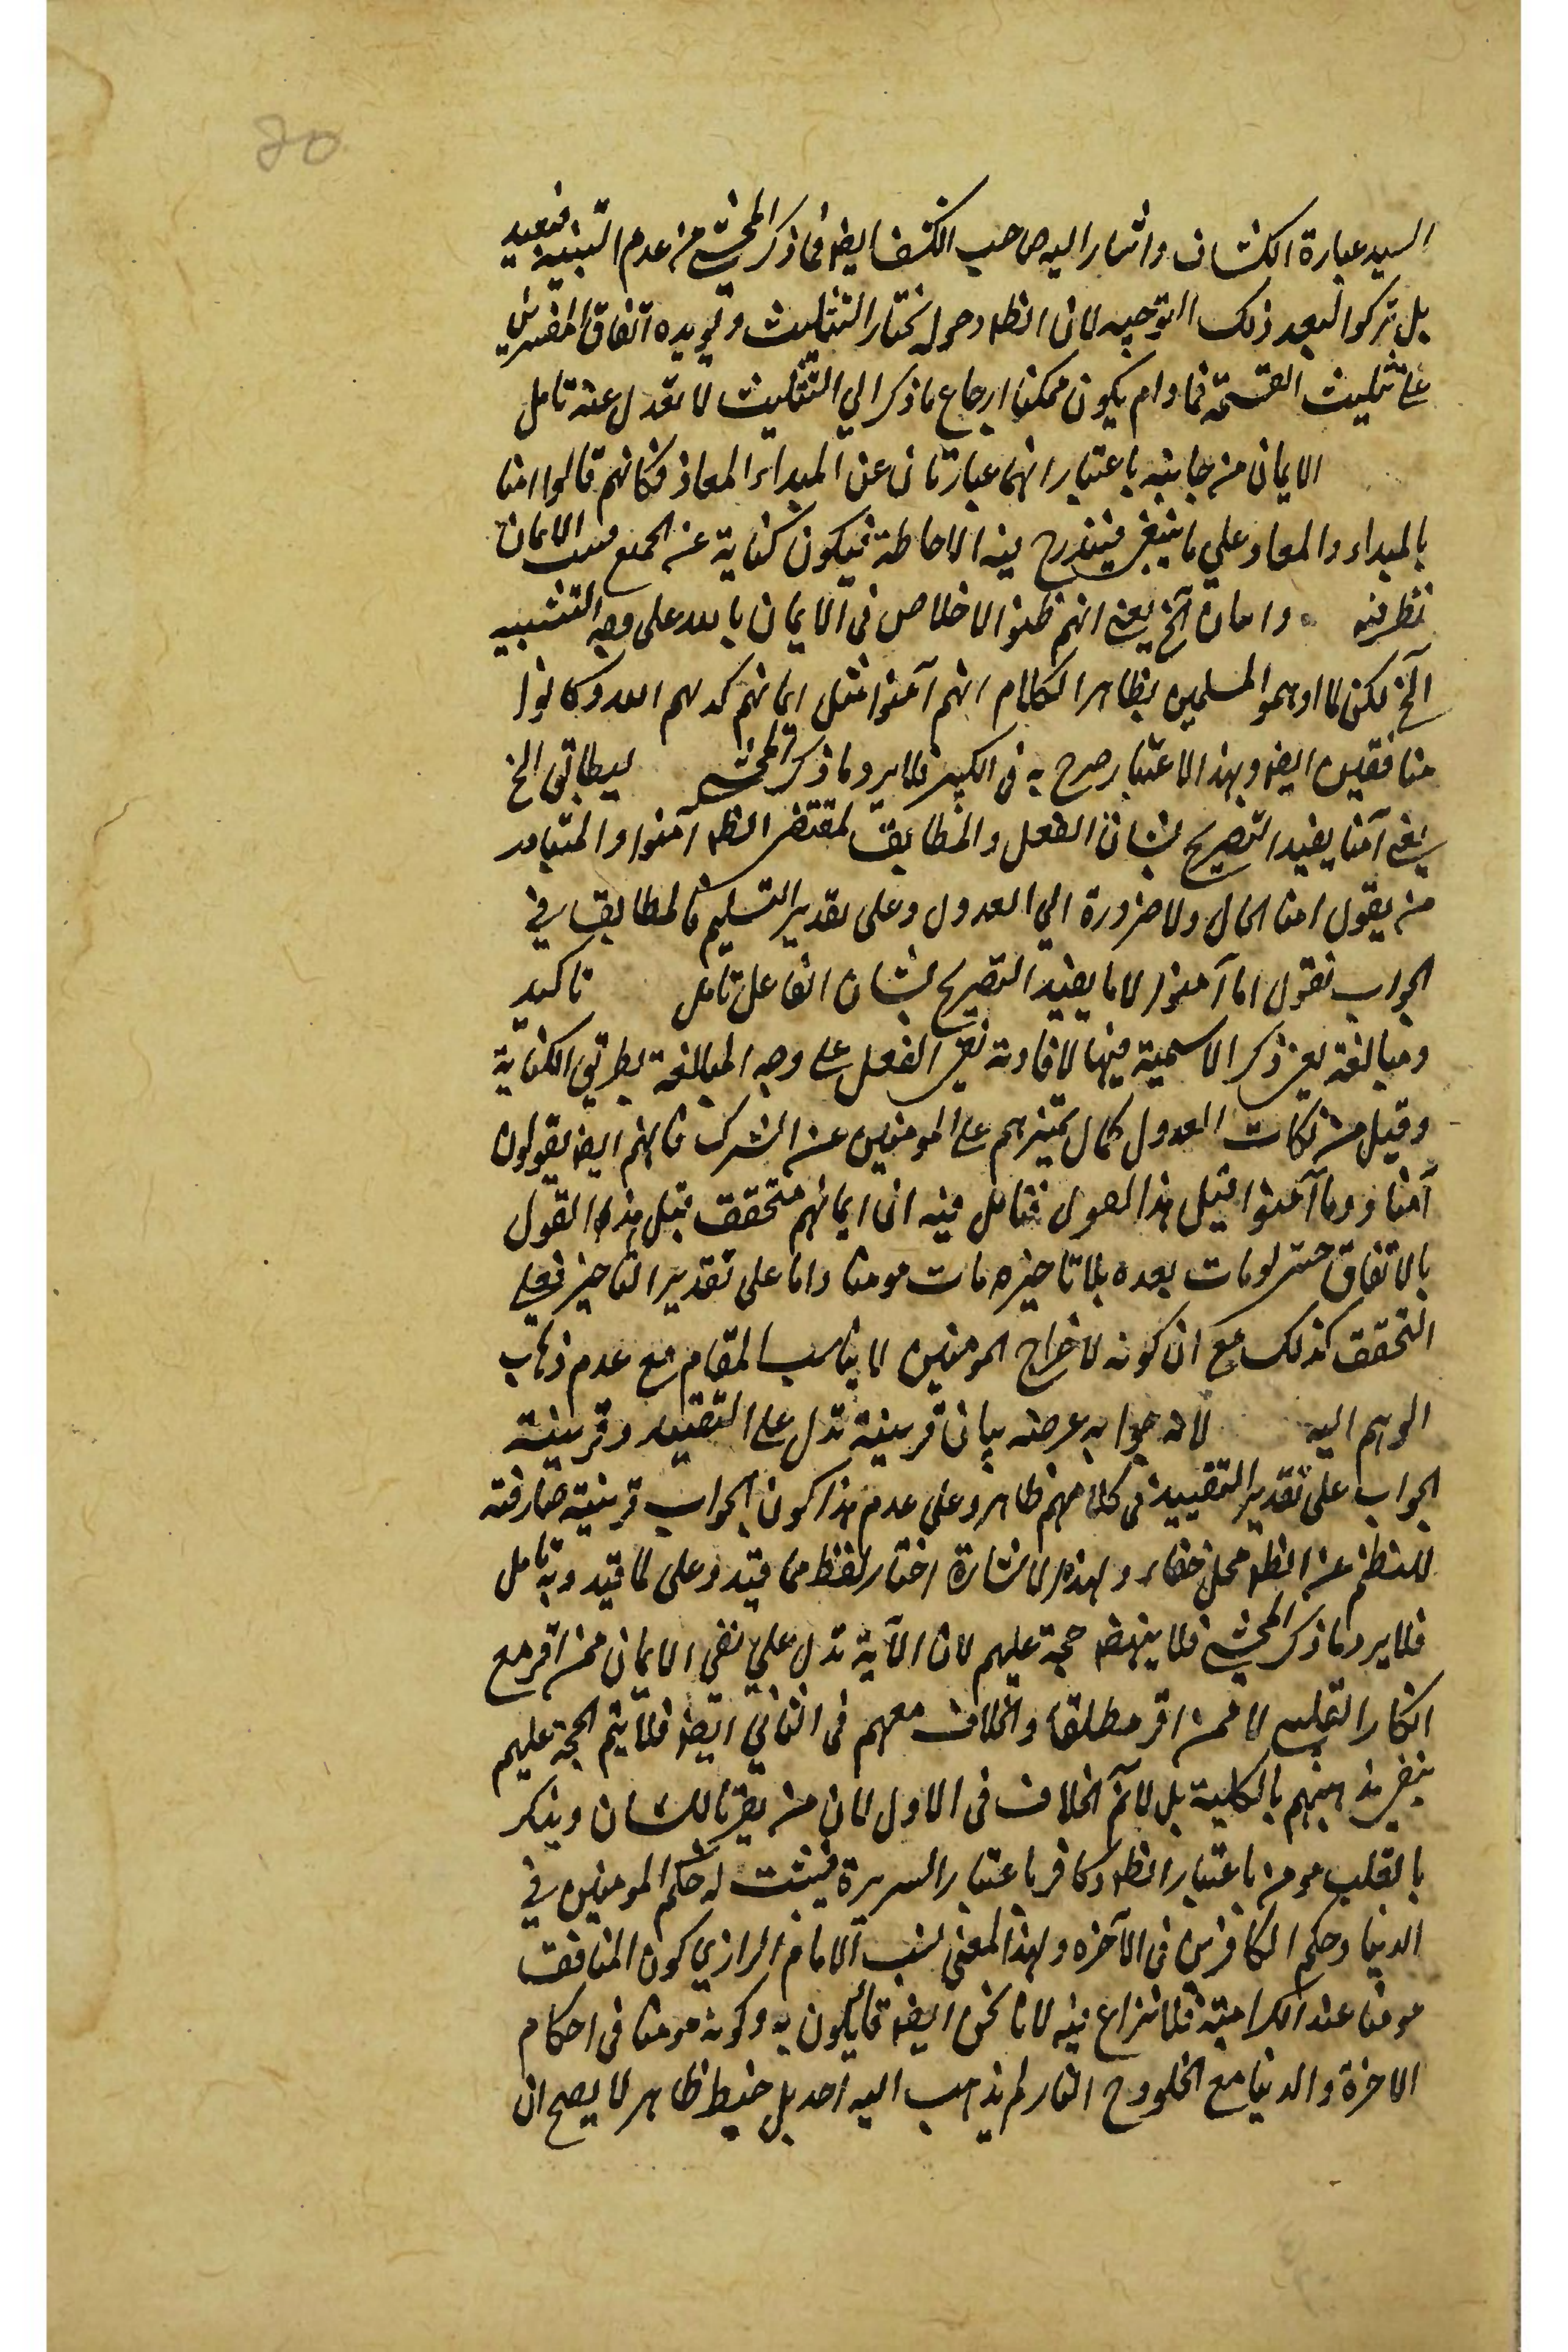 ٢٥
السيد عبارة الكشاف واشار اليه صاحب الكشف ايضا فما ذكر المحشي من عدم التنبيه فبعيد
بل تركوا لبعد ذلك التوجيه لان الظ دخوله تختار التثليث ويويده اتفاق المفسرين
على تثليث القسمة فما دام يكون ممكنا ارجاع ما ذكر الي التثليث لا نعدل عنه تامل
الايمان من جانبيه باعتبار انهما عبارتان عن المبداء المعاد فكانهم قالوا امنا
بالمبداء والمعاد علي ما ينبغي فيندرج فيه الاحاطة فيكون كناية عن الجمع الايمان
نظر فيه وامان آلخ يعني انهم ظنوا الاخلاص في الايمان بالله على وجه التشبيه
آلخ لكن لما اوهموا المسلمين بظاهر الكلام انهم آمنوا مثل ايمانهم كدبهم الله وكانوا
منافقين ايضا وبهذا الاعتبار صرح به في الكبير فلا يرد ما ذكر المحشي ليطابق الخ
يعني آمنا يفيد التصريح بشان الفعل والمطابق لمقتضى الظ آمنوا والمتبادر
من يقول امنا الحال ولا ضرورة الي العدول وعلى تقدير التسليم فالمطابق في
الجواب نقول اما آمنوا لا ما يفيد التصريح بشان الفاعل تامل تاكيد
ومبالغة يعني ذكر الاسمية فيها لافادة نفي الفعل على وجه المبالغة بطريق الكناية
وقيل من نكات العدول كمال تميزهم على المومنين عن الشرك فانهم ايضا يقولون
آمنا وما آمنوا قبل هذا القول فتامل فيه ان ايمانهم متحقق قبل هذا القول
بالاتفاق حتى لو مات بعده بلا تاخيره مات مومنا واما على تقدير التاخير فعلي
التحقق كذلك مع ان كونه لاخراج المومنين لا يناسب المقام مع عدم ذهاب
الوهم اليه لانه جوابه عرضه بيان قرينة تدل على التقييد وقرينة
الجواب على تقدير التقييد في كلامهم ظاهر وعلى عدم هذا كون الجواب قرينة صارفة
للنظم عن الظ محل خفاء ولهذه الاشارة اختار لفظ مما قيد وعلى لما قيد وبه تامل
فلا يرد ما ذكر المحشي فلا ينهض حجة عليهم لان الآية تدل علي نفي الايمان ممن اقر مع
انكار القلب لا ممن اقر مطلقا والخلاف معهم في الثاني ايضا فلا يتم الحجة عليهم
بنفي مذهبهم بالكلية بل لا نم الخلاف في الاول لان من يقر باللسان وينكر
بالقلب مومن باعتبار الظ وكافر باعتبار السريرة فيثبت له حكم المومنين في
الدنيا وحكم الكافرين في الآخره ولهذا المعنى نسب الامام الرازي كون المنافق
مومنا عند الكرامية فلا نزاع فيه لانا نحن ايضا قائلون به وكونه مومنا في احكام
الاخرة والدنيا مع الخلود ح النار لم يذهب اليه احد بل خبط ظاهر لا يصح ان